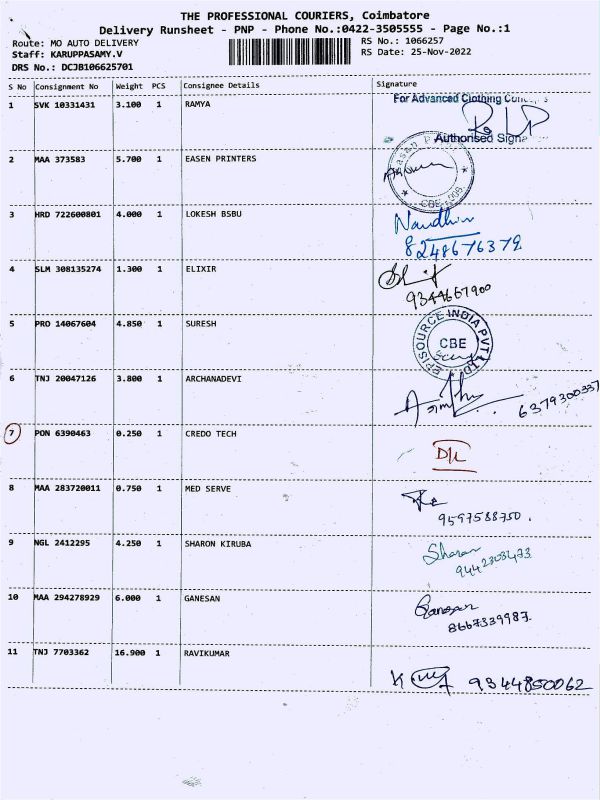 THE PROFESSIONAL COURIERS, Coimbatore
Delivery Runsheet - PNP - Phone No.:0422-3505555 - Page No.:1
Route: MO AUTO DELIVERY
RS No.: 1066257
Staff: KARUPPASAMY.V
RS Date: 25-Nov-2022
DRS No.: DCJB106625701
S No Consignment No Weight PCS Consignee Details Signature
1 SVK 10331431 3.100 1 RAMYA
For Advanced Clothing
Authorised
2 MAA 373583 5.700 1 EASEN PRINTERS
CBE
3 HRD 722600801 4.000 1 LOKESH BSBU
Nandhini
8248676379
4 SLM 308135274 1.300 1 ELIXIR
9344667900
5 PRO 14067604 4.850 1 SURESH
EPISOURCE INDIA PVT LTD
CBE
6 TNJ 20047126 3.800 1 ARCHANADEVI
6379300337
7 PON 6390463 0.250 1 CREDO TECH
D/L
8 MAA 283720011 0.750 1 MED SERVE
9597588750.
9 NGL 2412295 4.250 1 SHARON KIRUBA
Sharon
9442303473
10 MAA 294278929 6.000 1 GANESAN
Ganesan
8667339987.
11 TNJ 7703362 16.900 1 RAVIKUMAR
9344850062